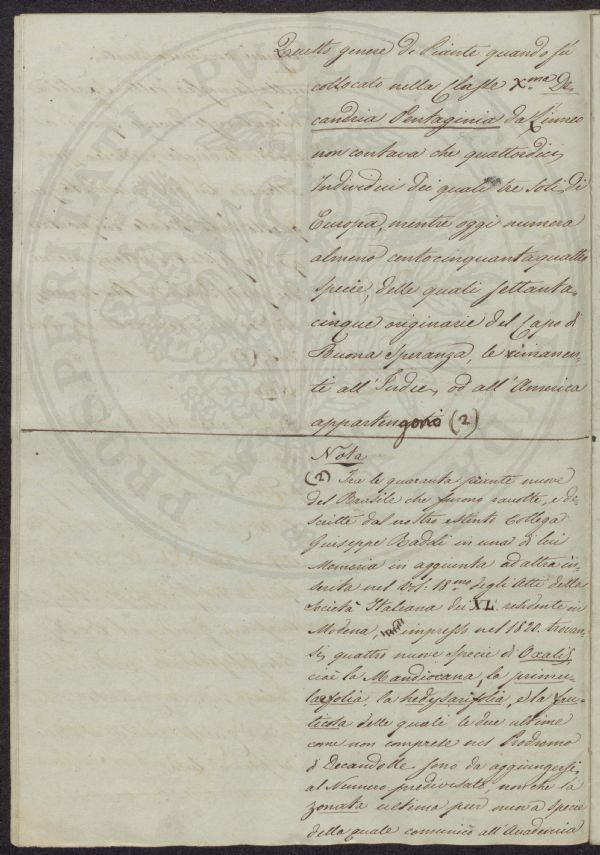 Questo genere di Piante quando fù
collocato nella Classe X.ma De-
candria Pentaginia da Linneo
non contava che quattordici
Individui dei quali tre soli di
Europa, mentre oggi numera
almeno centocinquantaquattro
specie, delle quali settanta-
cinque originarie del Capo di
Buona Speranza, le rimanen-
ti all'Indie, od all'America
appartengono (2)
Nota
(2) Tra le quaranta piante nuove
del Brasile che furono raccolte, e de-
scritte dal nostro estinto Collega
Giuseppe Raddi in una di lui
Memoria in aggiunta ad altra in-
serita nel Vol. 18.mo degli Atti della
Società Italiana dei XL. residente in
Modena, impresso nel 1820. trovan-
si quattro nuove specie di Oxalis,
cioè la Mandiocana, la primu-
laefolia, la hedysarifolia, e la fru-
ticosa delle quali le due ultime
come non comprese nel Prodromo
di Decandolle sono da aggiungersi
al Numero predivisato, nonchè la
zonata ultima pur nuova specie
della quale comunicò all'Accademia
PROSPERITATI PUBLICAE